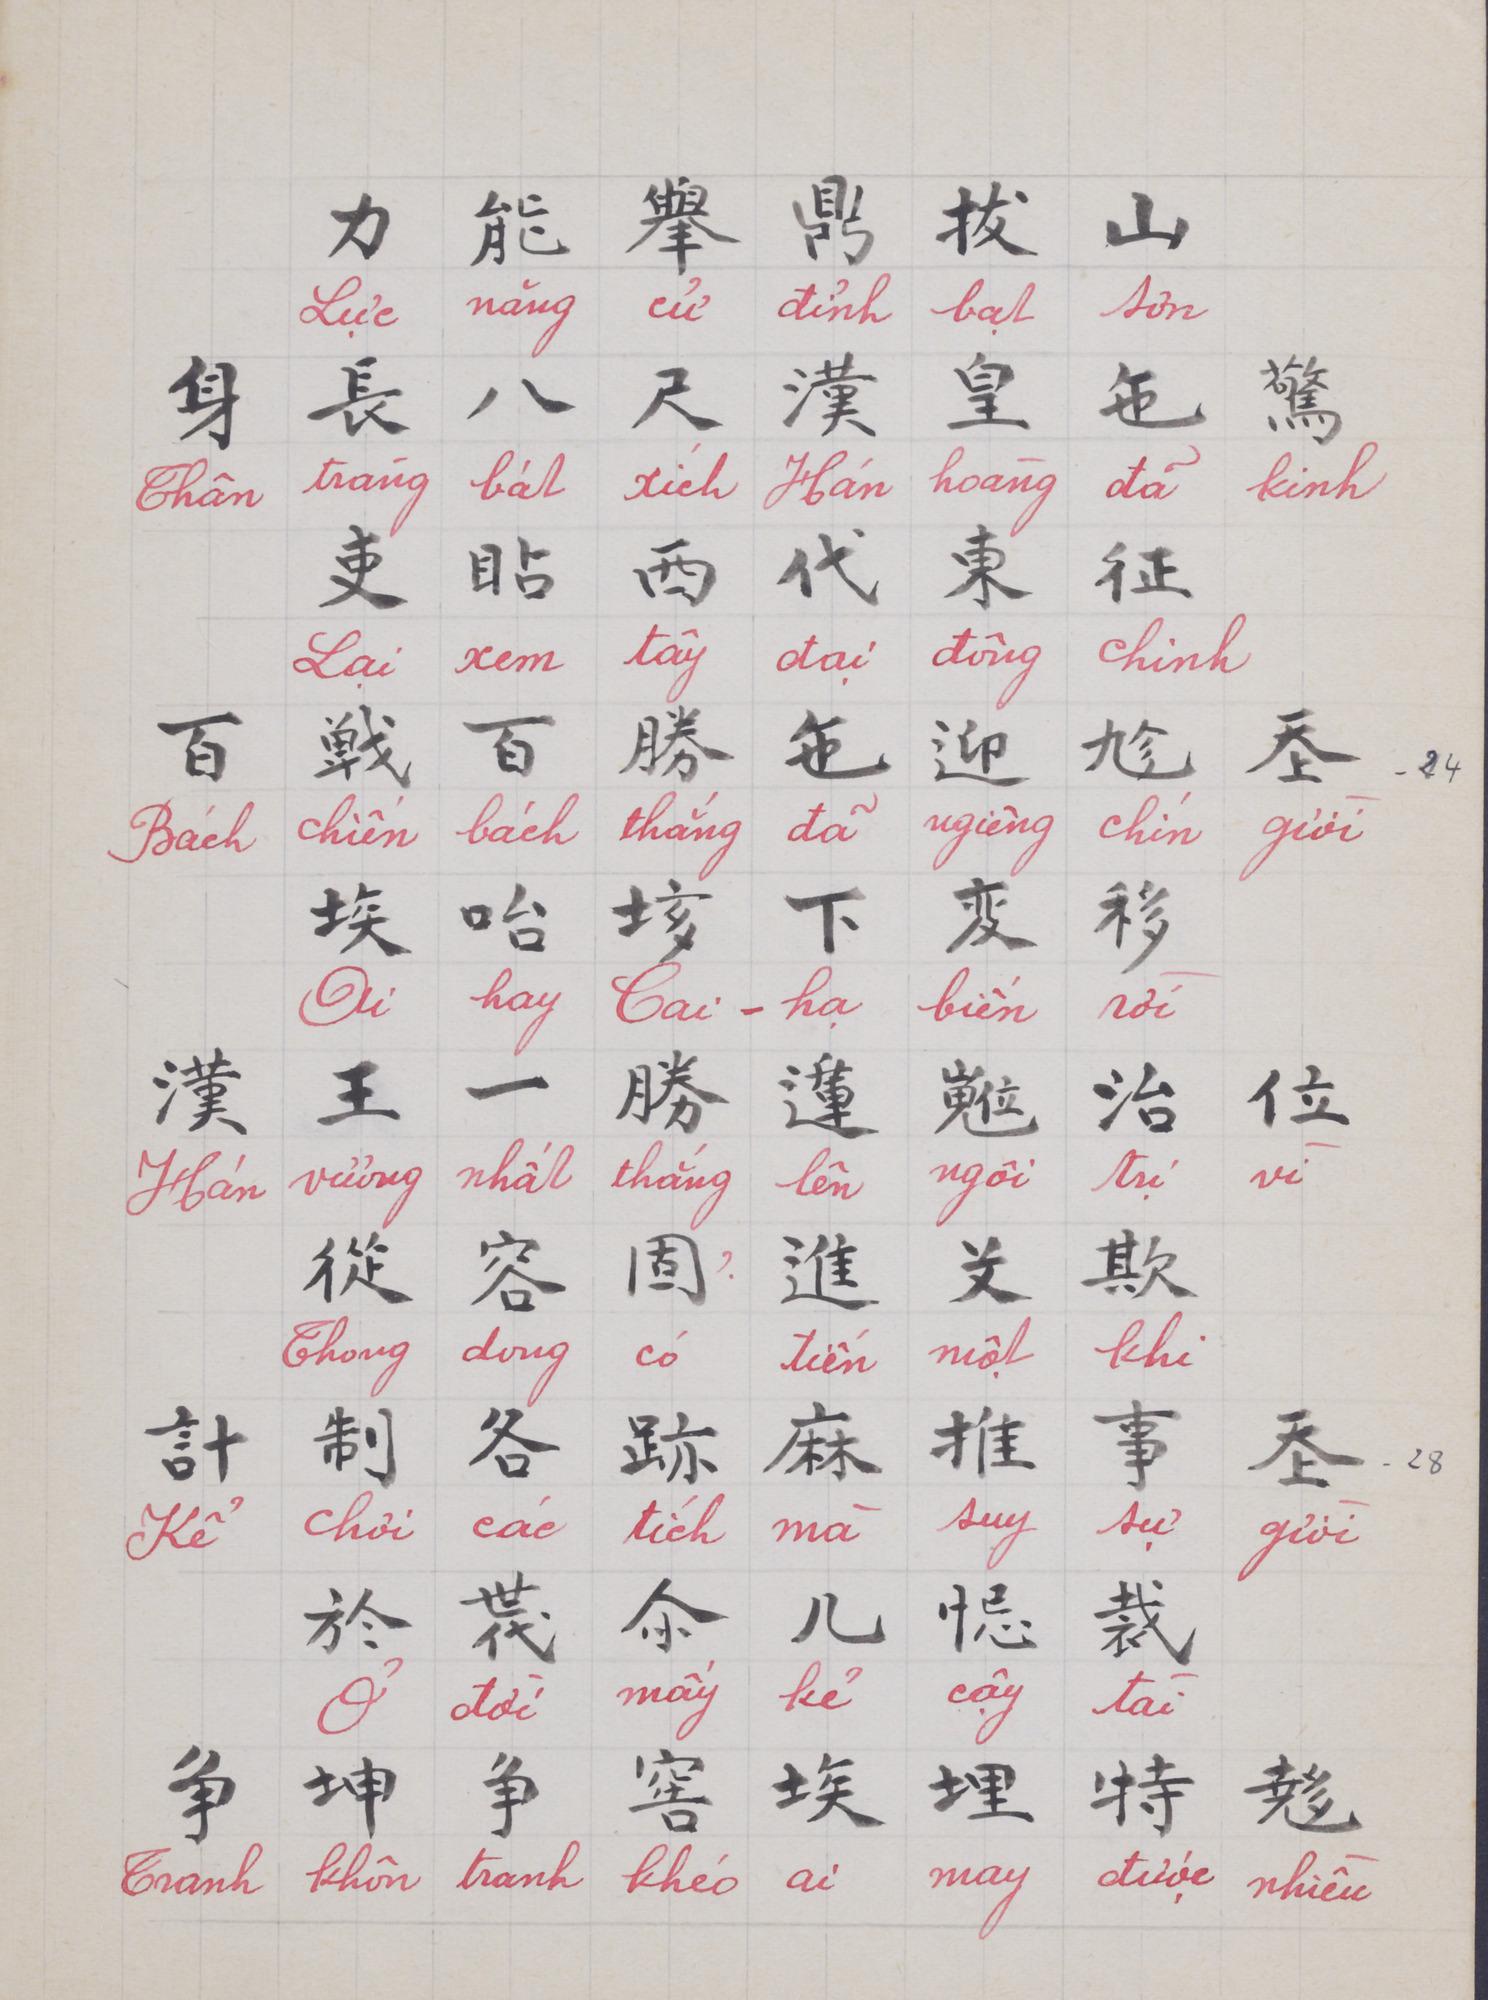 力 能 舉 鼎 拔 山
Lực năng cử đỉnh bạt sơn
身 長 八 尺 漢 皇 㐌 驚
Thân tràng bát xích Hán hoàng đã kinh
吏 䀡 西 代 東 征
Lại xem tây đại đông chinh
百 戰 百 勝 㐌 迎 𠃩 𡗶 - 24
Bách chiến bách thắng đã nghiêng chín giời
埃 咍 垓 下 変 移
Ai hay Cai - hạ biến rời
漢 王 一 勝 𨖲 𡾵 治 位
Hán vương nhất thắng lên ngôi trị vì
從 容 固 ? 進 𠬠 欺
Thong dong có tiến một khi
計 制 各 跡 麻 推 事 𡗶 - 28
Kể chơi các tích mà suy sự giời
於 𠁀 尒 几 忋 裁
Ở đời mấy kẻ cậy tài
爭 坤 爭 窖 埃 埋 特 𡗉
Tranh khôn tranh khéo ai may được nhiều